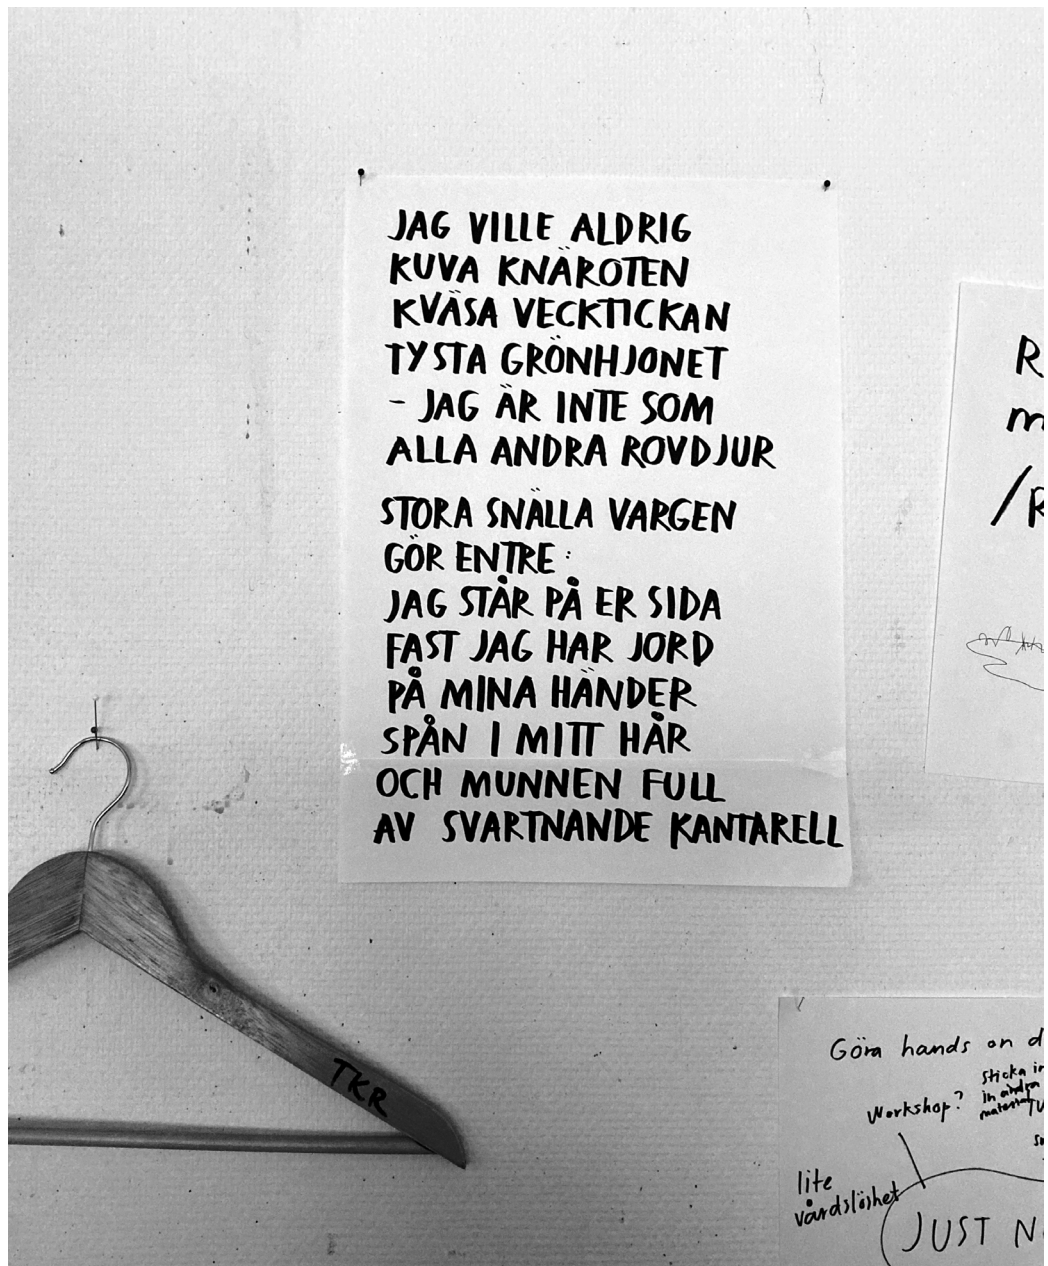 JAG VILLE ALDRIG
KUVA KNÄROTEN
KVÄSA VECKTICKAN
TYSTA GRÖNHJONET
- JAG ÄR INTE SOM
ALLA ANDRA ROVDJUR
STORA SNÄLLA VARGEN
GÖR ENTRE:
JAG STÅR PÅ ER SIDA
FAST JAG HAR JORD
PÅ MINA HÄNDER
SPÅN I MITT HÅR
OCH MUNNEN FULL
AV SVARTNANDE KANTARELL
R
m
/R
TKR
Göra hands on d
Sticka in
in andra
material
Workshop?
lite
vårdslöshet
JUST N